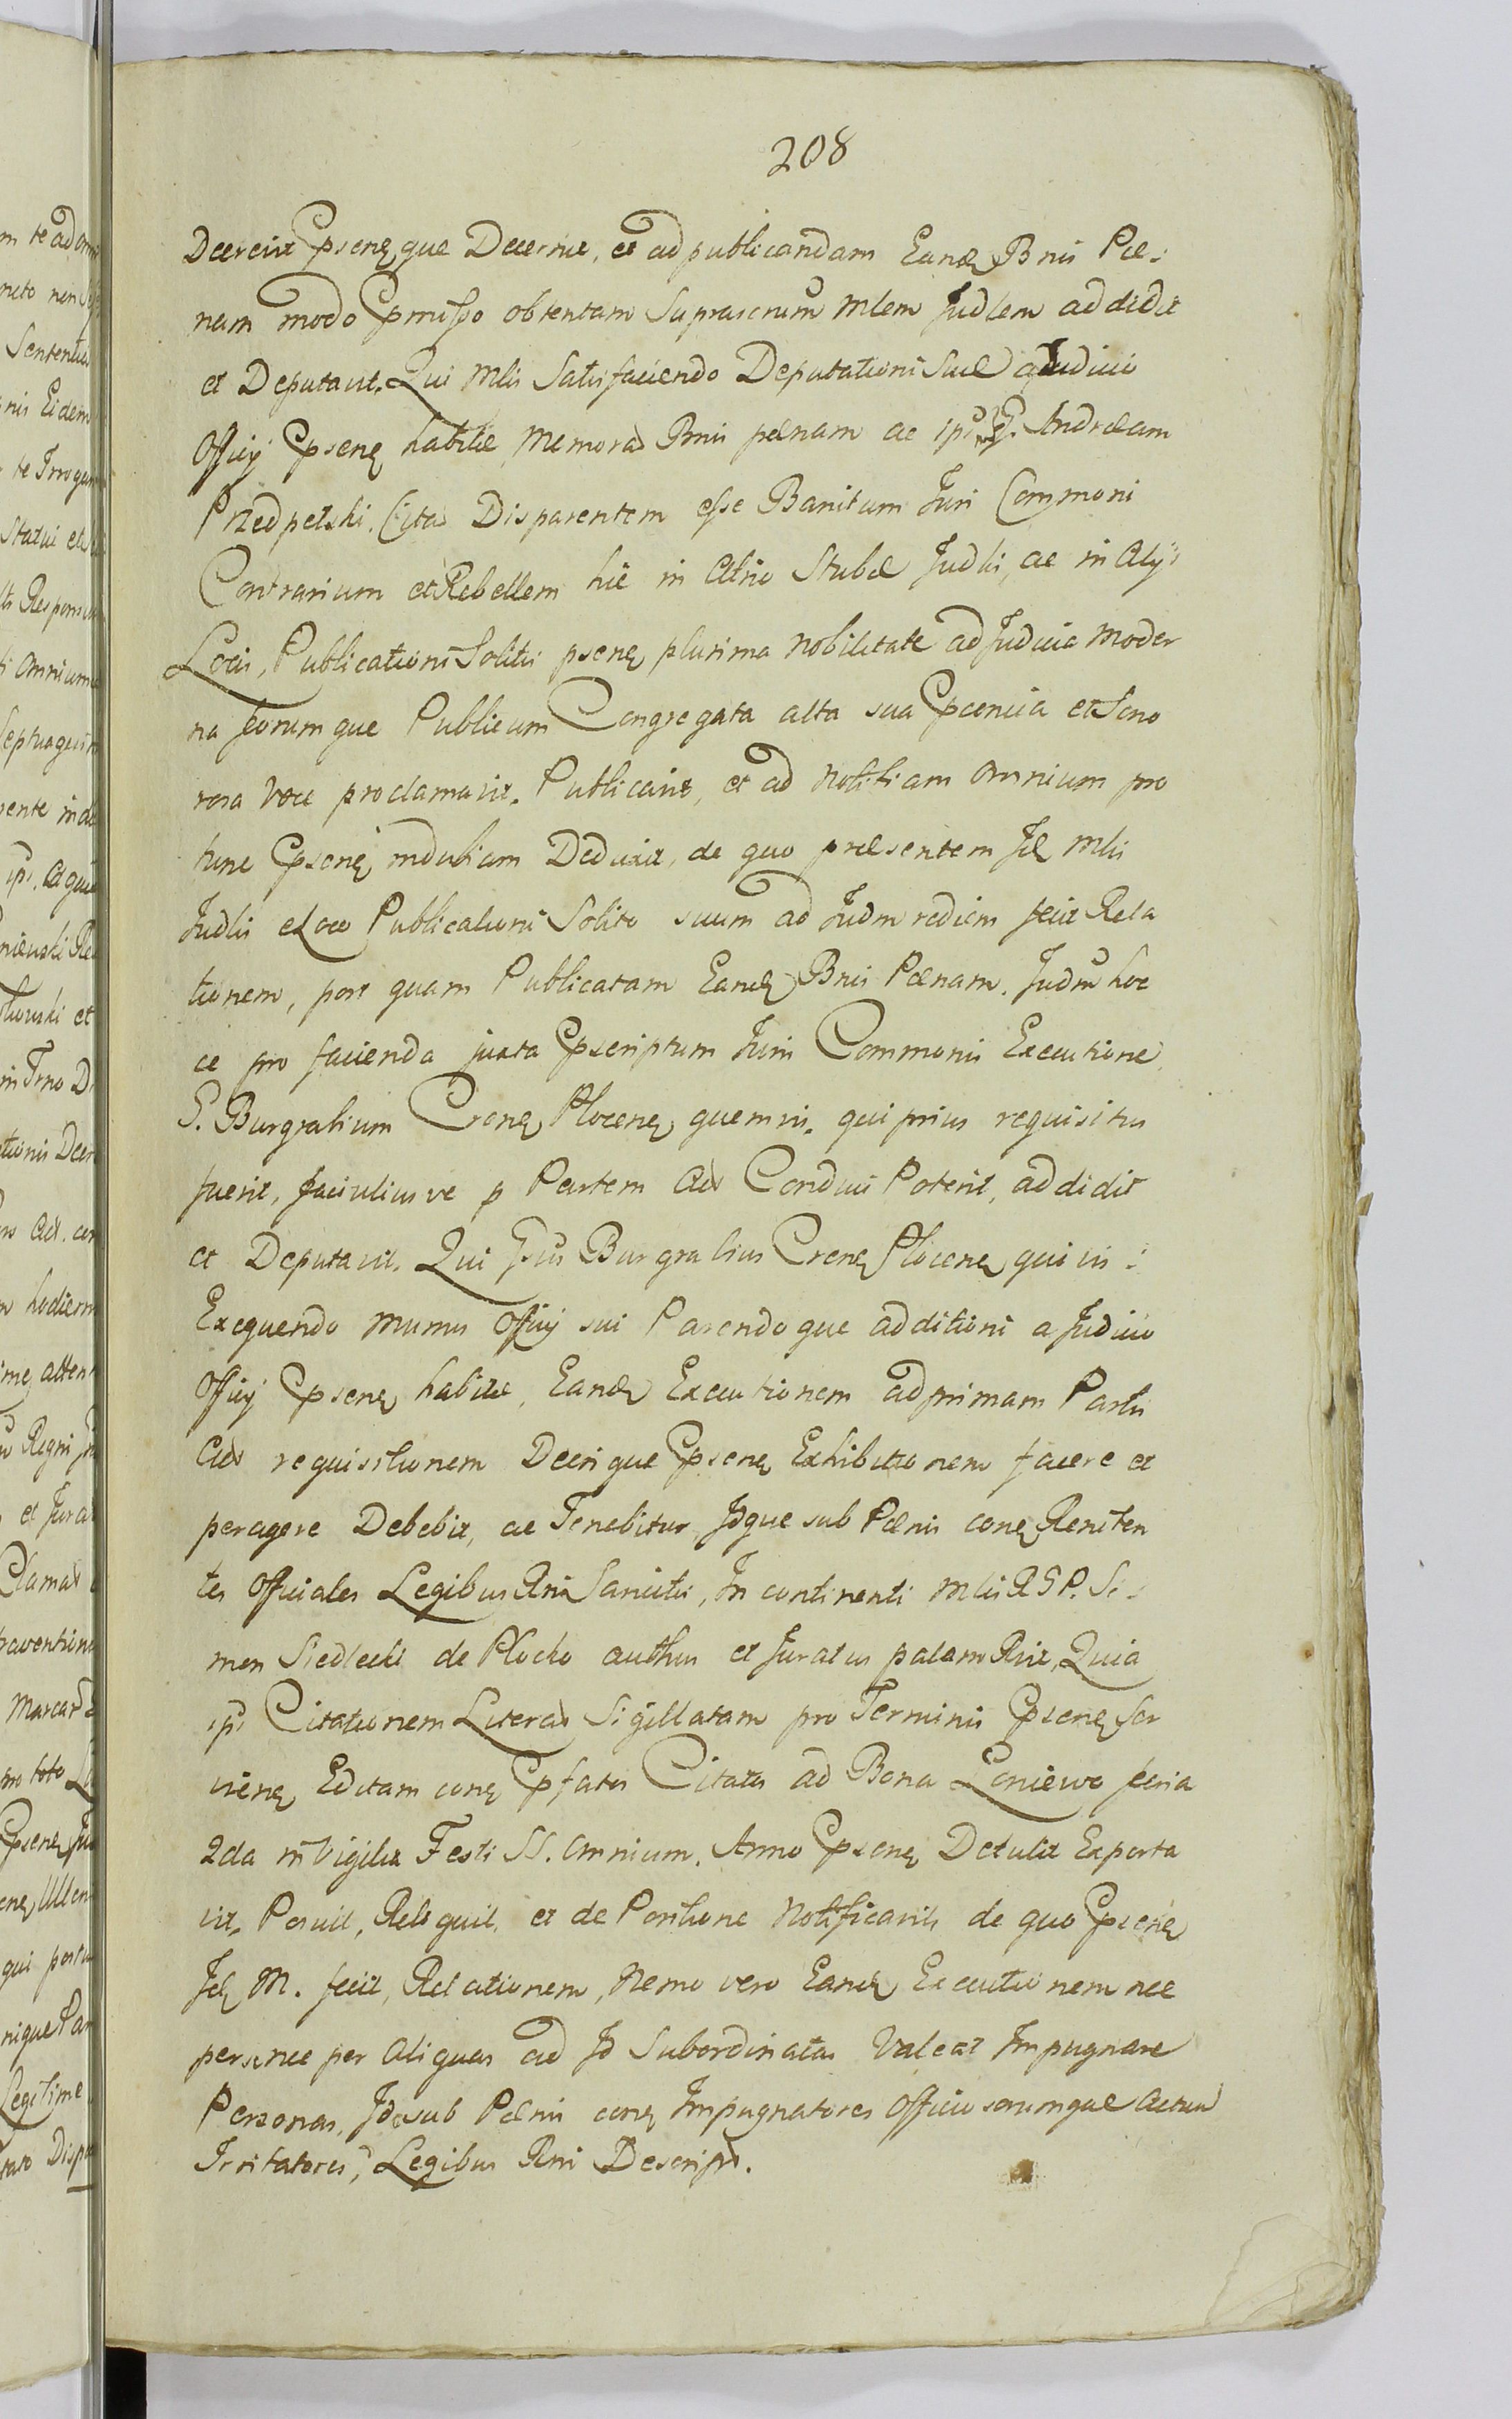 208
Decrevit Pseneque Decernit, et ad publicandam Eandem Bnis Pæ-
nam modo Pmisso obtentam Suprascrum Mlem Judlem addidit
et Deputavit. Qui Mlis Satisfaciendo Deputationi Suæ a Judicio
Officij Psenq habitæ, Memorad Bnis pænam ac ipsum G. Andræam
Przedpelski Citad Disparentem esse Banitum Juri Communi
Contrarium et Rebellem hic in Atrio Stubæ Judli, ac in Alijs
Locis, Publicationi Solitis psenq plurima Nobilitate ad Judicia moder
na forumque Publicum Congregata alta sua Pcenia et Sono
rosa Voce proclamavit. Publicavit, et ad Notitiam Omnium pro
tunc Psenq indubiam Deduxit, de quo præsentem Jd Mlis
Judlis e Loco Publicationi Solito suum ad Judm rediens fecit Rela
tionem, post quam Publicatam Eandq Bnis Pænam. Judm hoc
ce pro facienda juxta Pscriptum Juris Communis Executione
G. Burgrabium Crenq Plocenq quemvis. qui prius requisitus
fuerit, faciliusve p Partem Act Conduci Poterit, addidit
et Deputavit. Qui Gsus Burgrabius Crenq Plocenq quivis:
Exequendo munus Officij sui Parendoque additioni a Judicio
Officij Psenq habitæ, Eandq Executionem ad primam Partis
Act requisitionem Decrique Psenq Exhibitionem facere et
peragere Debebit, ac Tenebitur, Idque sub Pænis conq Reniten
tes Officiales Legibus Rni Sancitis, In continenti Mlis RGP. Si-
mon Siedlecki de Plocko authus et Juratus palam Rvit, Quia
ips Citationem Literad Sigillatam pro Terminis Psenq Ser
vienq Editam conq Pfatos Citatos ad Bona Loniewo feria
2da in Vigilia Festi SS. Omnium. Anno Psenq Detulit Exporta
vit, Posuit, Reliquit, et de Positione Notificavit, de quo Psenq
Jdq M. fecit, Relationem, Nemo vero Eandq Executionem nec
per se nec per Aliquas ad Id Subordinatas Valeat Impugnare
Personas, Id sub Pænis conq Impugnatores Officiosorumque Actuu
Irritatores, Legibus Rni Descript.